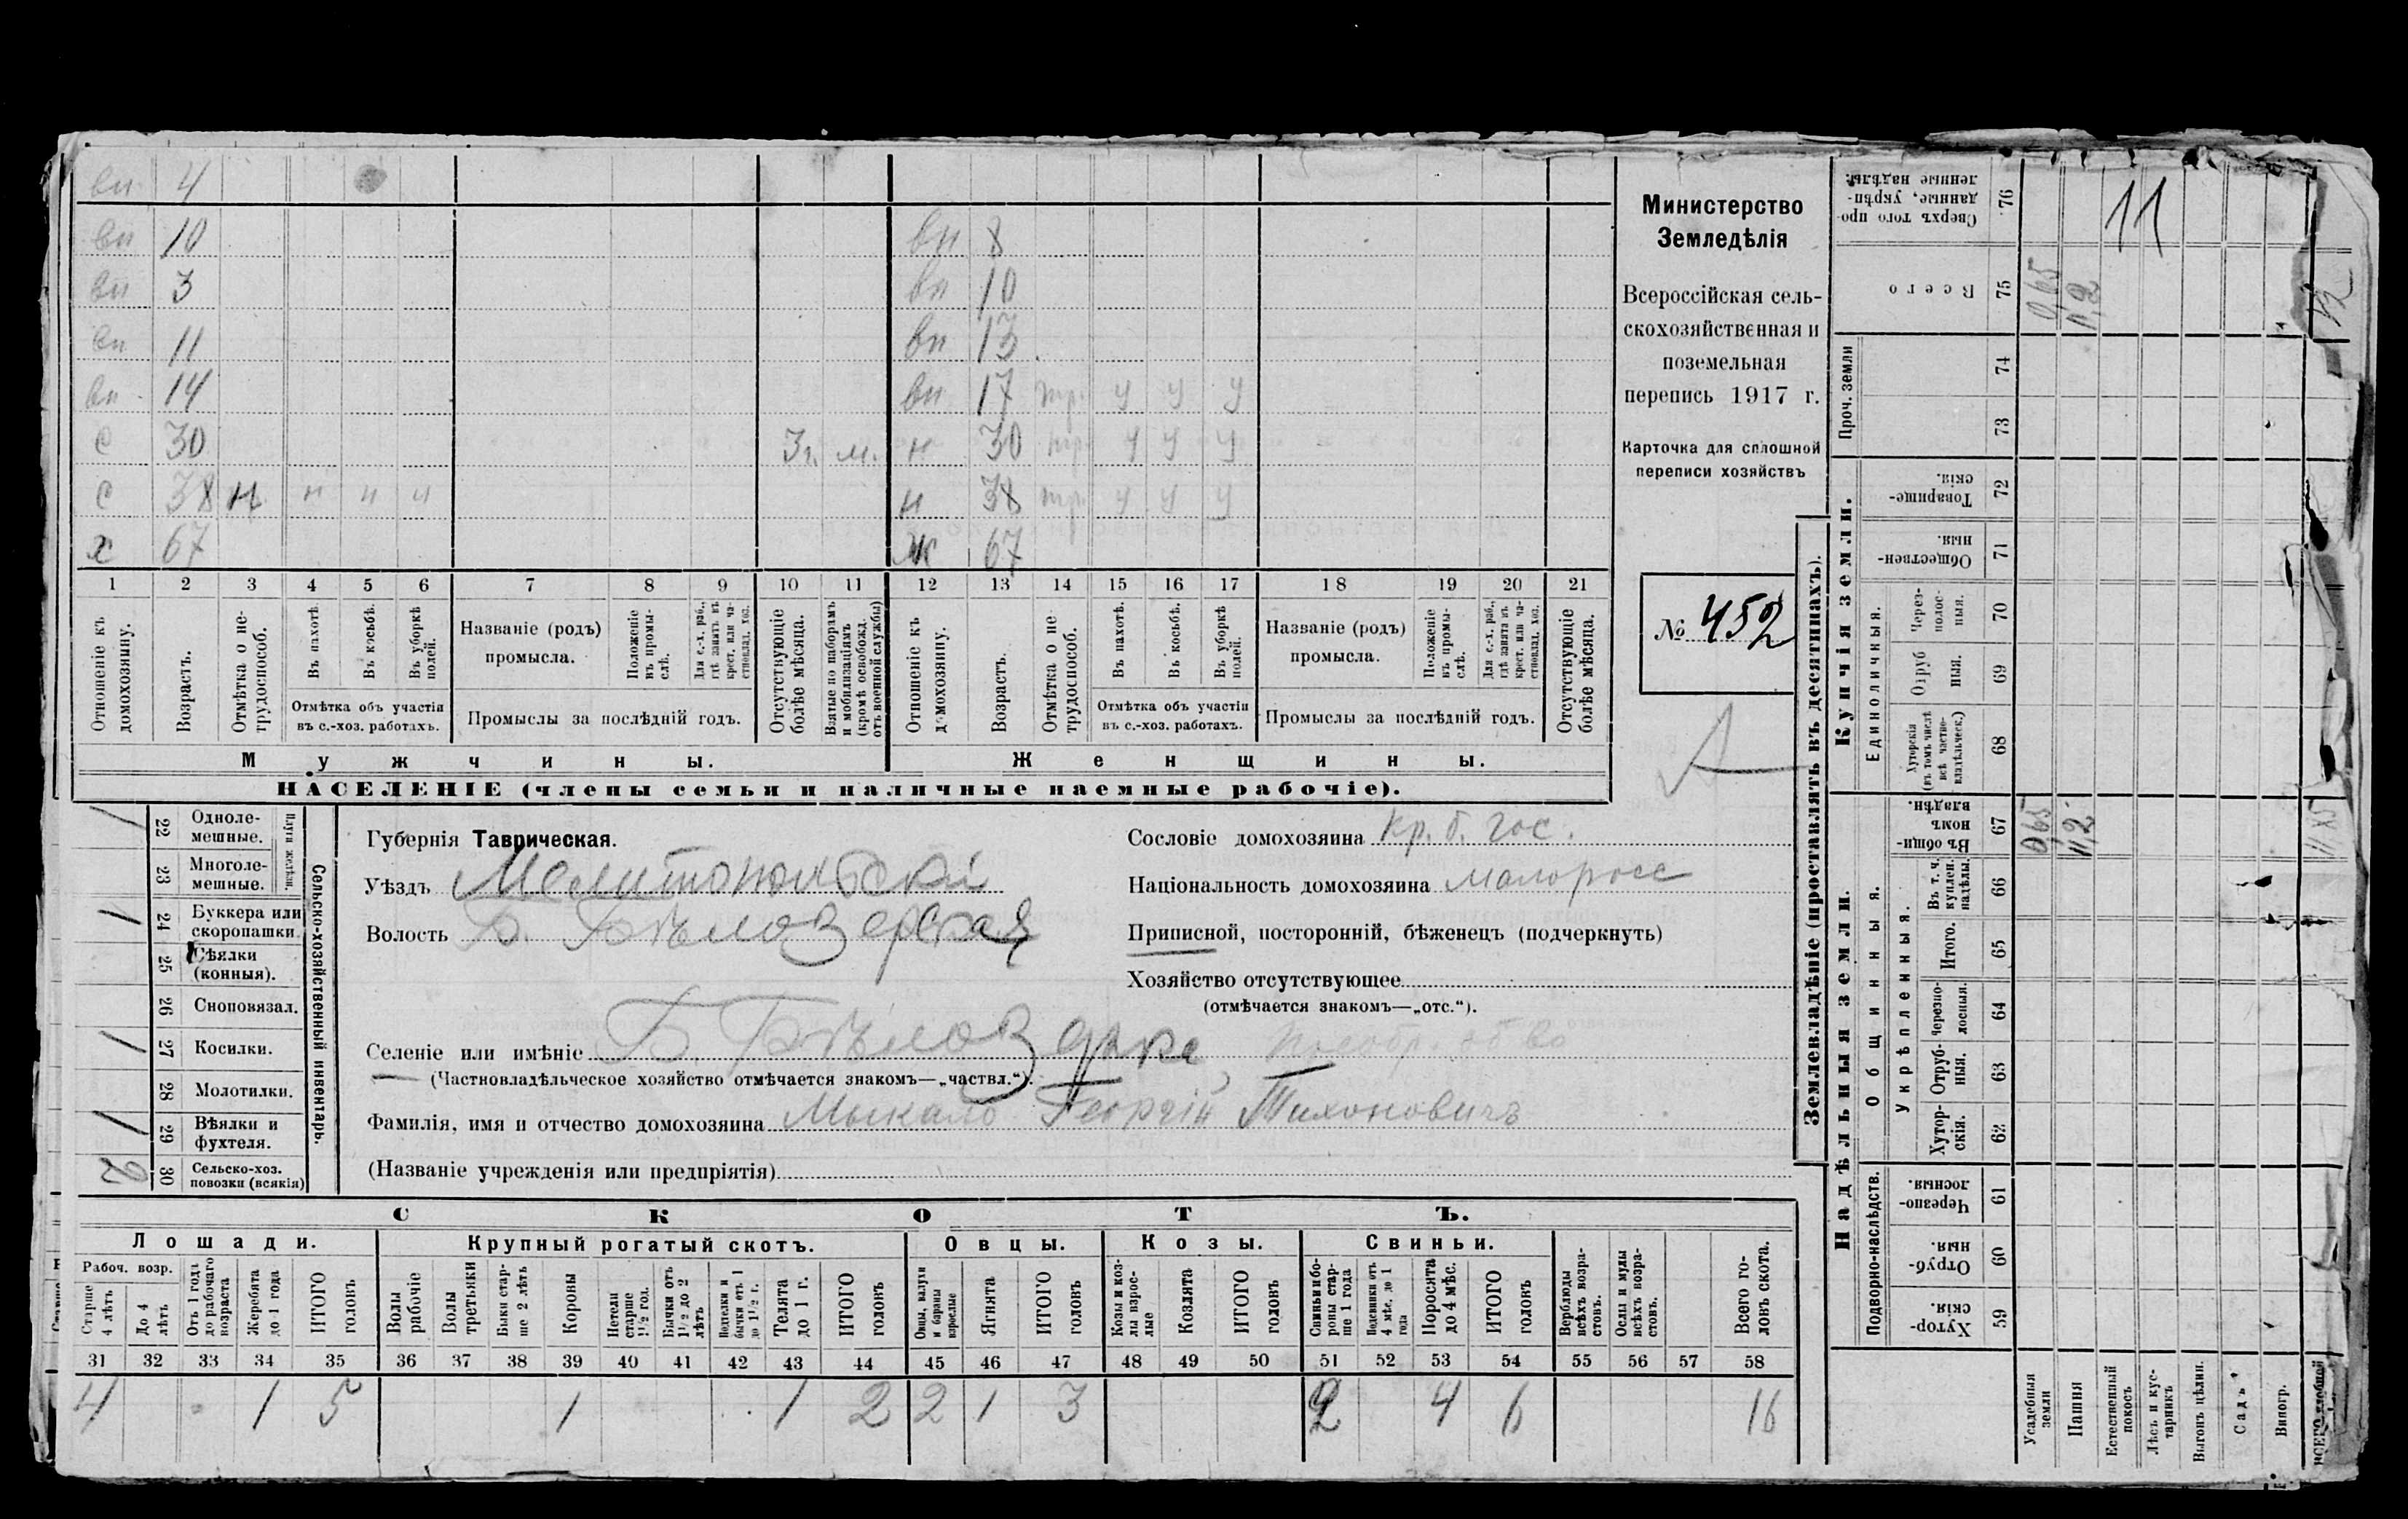 вн 4
вн 10 вн 8
вн 3 вн 10
вн 11 вн 13
вн 14 вн 17 тр. у у у
с 30 3 г. м. н 30 тр. у у у
с 38 н н н н н 38 тр. у у у
х 67 ж 67
1 2 3 4 5 6 7 8 9 10 11 12 13 14 15 16 17 18 19 20 21
Отношеніе къ домохозяину.
Возрастъ.
Отмѣтка о не-трудоспособ.
Въ пахотѣ.
Въ косьбѣ.
Въ уборкѣ полей.
Отмѣтка объ участіи
въ с.-хоз. работахъ.
Названіе (родъ)
промысла.
Положеніе въ промы-слѣ.
Для с.-х. раб., гдѣ занятъ въ крест. или ча-стновлад. хоз.
Промыслы за послѣдній годъ.
Отсутствующіе болѣе мѣсяца.
Взятые по наборамъ и мобилизаціямъ (кромѣ освобожд. отъ военной службы)
Отношеніе къ домохозяину.
Возрастъ.
Отмѣтка о не-трудоспособ.
Въ пахотѣ.
Въ косьбѣ.
Въ уборкѣ полей.
Отмѣтка объ участіи
въ с.-хоз. работахъ.
Названіе (родъ)
промысла.
Положеніе въ промы-слѣ.
Для с.-х. раб., гдѣ занятъ въ крест. или ча-стновлад. хоз.
Промыслы за послѣдній годъ.
Отсутствующіе болѣе мѣсяца.
Мужчины. Женщины.
НАСЕЛЕНІЕ (члены семьи и наличные наемные рабочіе).
Министерство
Земледѣлія
Всероссійская сель-
скохозяйственная и
поземельная
перепись 1917 г.
Карточка для сплошной
переписи хозяйствъ
№ 452
А
Сельско-хозяйственный инвентарь.
Плуги желѣзн.
1 22 Одноле-
мешные.
23 Многоле-
мешные.
1 24 Буккера или
скоропашки.
25 Сѣялки
(конныя).
26 Сноповязал.
1 27 Косилки.
28 Молотилки.
1 29 Вѣялки и
фухтеля.
2 30 Сельско-хоз.
повозки (всякія)
Губернія Таврическая.
Уѣздъ Мелитопольскій
Волость Б. Бѣлозерская
Селеніе или имѣніе Б. Бѣлозерка,
(Частновладѣльческое хозяйство отмѣчается знакомъ—„частвл.“).
Фамилія, имя и отчество домохозяина Мыкало Георгій Тихоновичъ
(Названіе учрежденія или предпріятія)
Сословіе домохозяина кр. б. гос.
Національность домохозяина малоросс
Приписной, посторонній, бѣженецъ (подчеркнуть)
Хозяйство отсутствующее
(отмѣчается знакомъ—„отс.“).
СКОТЪ.
Лошади. Крупный рогатый скотъ. Овцы. Козы. Свиньи.
Рабоч. возр.
Старше 4 лѣтъ
До 4 лѣтъ
Отъ 1 года до рабочаго возраста
Жеребята до 1 года
ИТОГО головъ
Волы рабочіе
Волы третьяки
Быки стар-ше 2 лѣтъ
Коровы
Нетели старше 1½ год.
Бычки отъ 1½ до 2 лѣтъ
Подтелки и бычки отъ 1 до 1½ г.
Телята до 1 г.
ИТОГО головъ
Овцы, валухи и бараны взрослые
Ягнята
ИТОГО головъ
Козы и коз-лы взрос-лые
Козлята
ИТОГО головъ
Свиньи и бо-ровы стар-ше 1 года
Подсвинки отъ 4 мѣс. до 1 года
Поросята до 4 мѣс.
ИТОГО головъ
Верблюды всѣхъ возра-стовъ.
Ослы и мулы всѣхъ возра-стовъ.
Всего го-ловъ скота.
31 32 33 34 35 36 37 38 39 40 41 42 43 44 45 46 47 48 49 50 51 52 53 54 55 56 57 58
4 1 5 1 1 2 2 1 3 2 4 6 16
Землевладѣніе (проставлять въ десятинахъ).
Купчія земли.
Надѣльныя земли.
Сверхъ того про-данные, укрѣп-ленные надѣлы. 76 11
Всего 75 0,65 11,2
Проч. земли 74
73
Товарище-скія. 72
Обществен-ныя. 71
Единоличныя.
Через-полос-ныя. 70
Отруб-ныя. 69
Хуторскія (въ томъ числѣ всѣ частно-владѣльческ.) 68
Общинныя.
Въ общи-номъ владѣн. 67 0,65 11,2 11,85
Укрѣпленныя.
Въ т. ч. куплен. надѣлы. 66
Итого. 65
Черезпо-лосныя. 64
Отруб-ныя. 63
Хутор-скія. 62
Подворно-наслѣдств.
Черезпо-лосныя. 61
Отруб-ныя. 60
Хутор-скія. 59
Усадебныя земли
Пашня
Естественный покосъ
Лѣсъ и кус-тарникъ
Выгонъ цѣлин.
Садъ
Виногр.